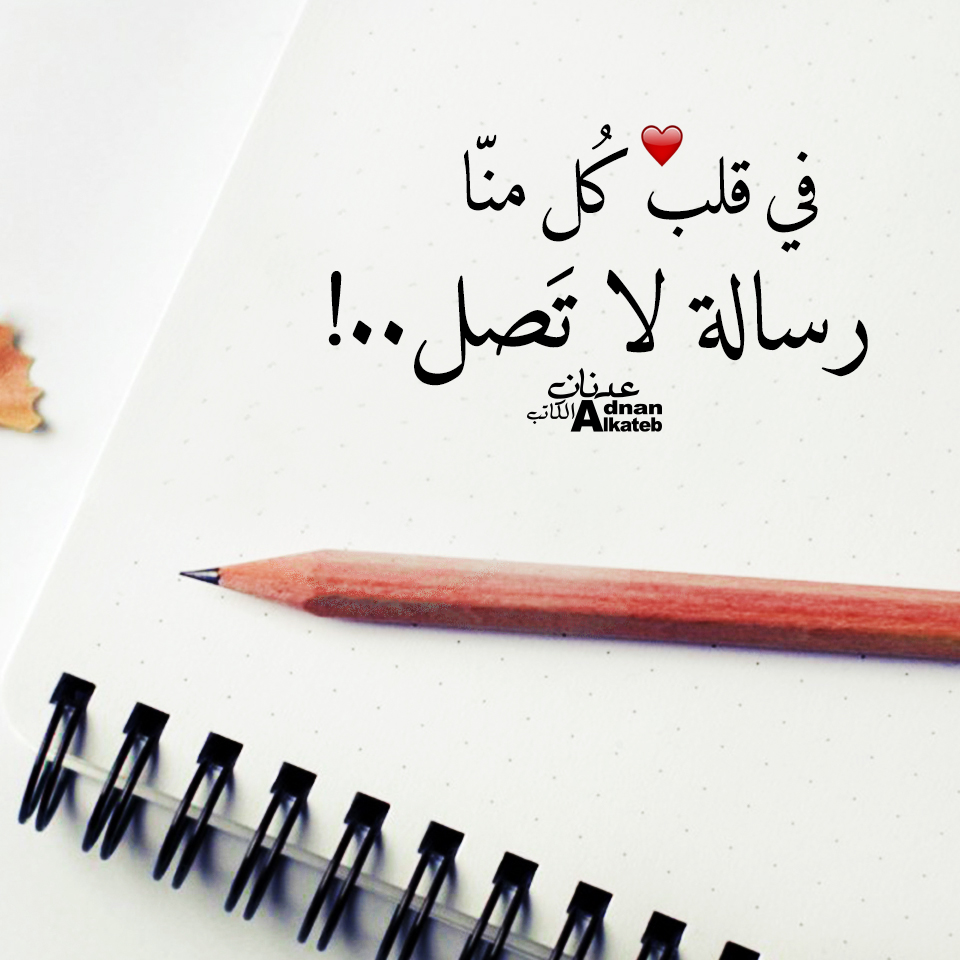 في قلب كُل منّا
رسالة لا تَصل..!
عدنان
الكاتب
Adnan
Alkateb